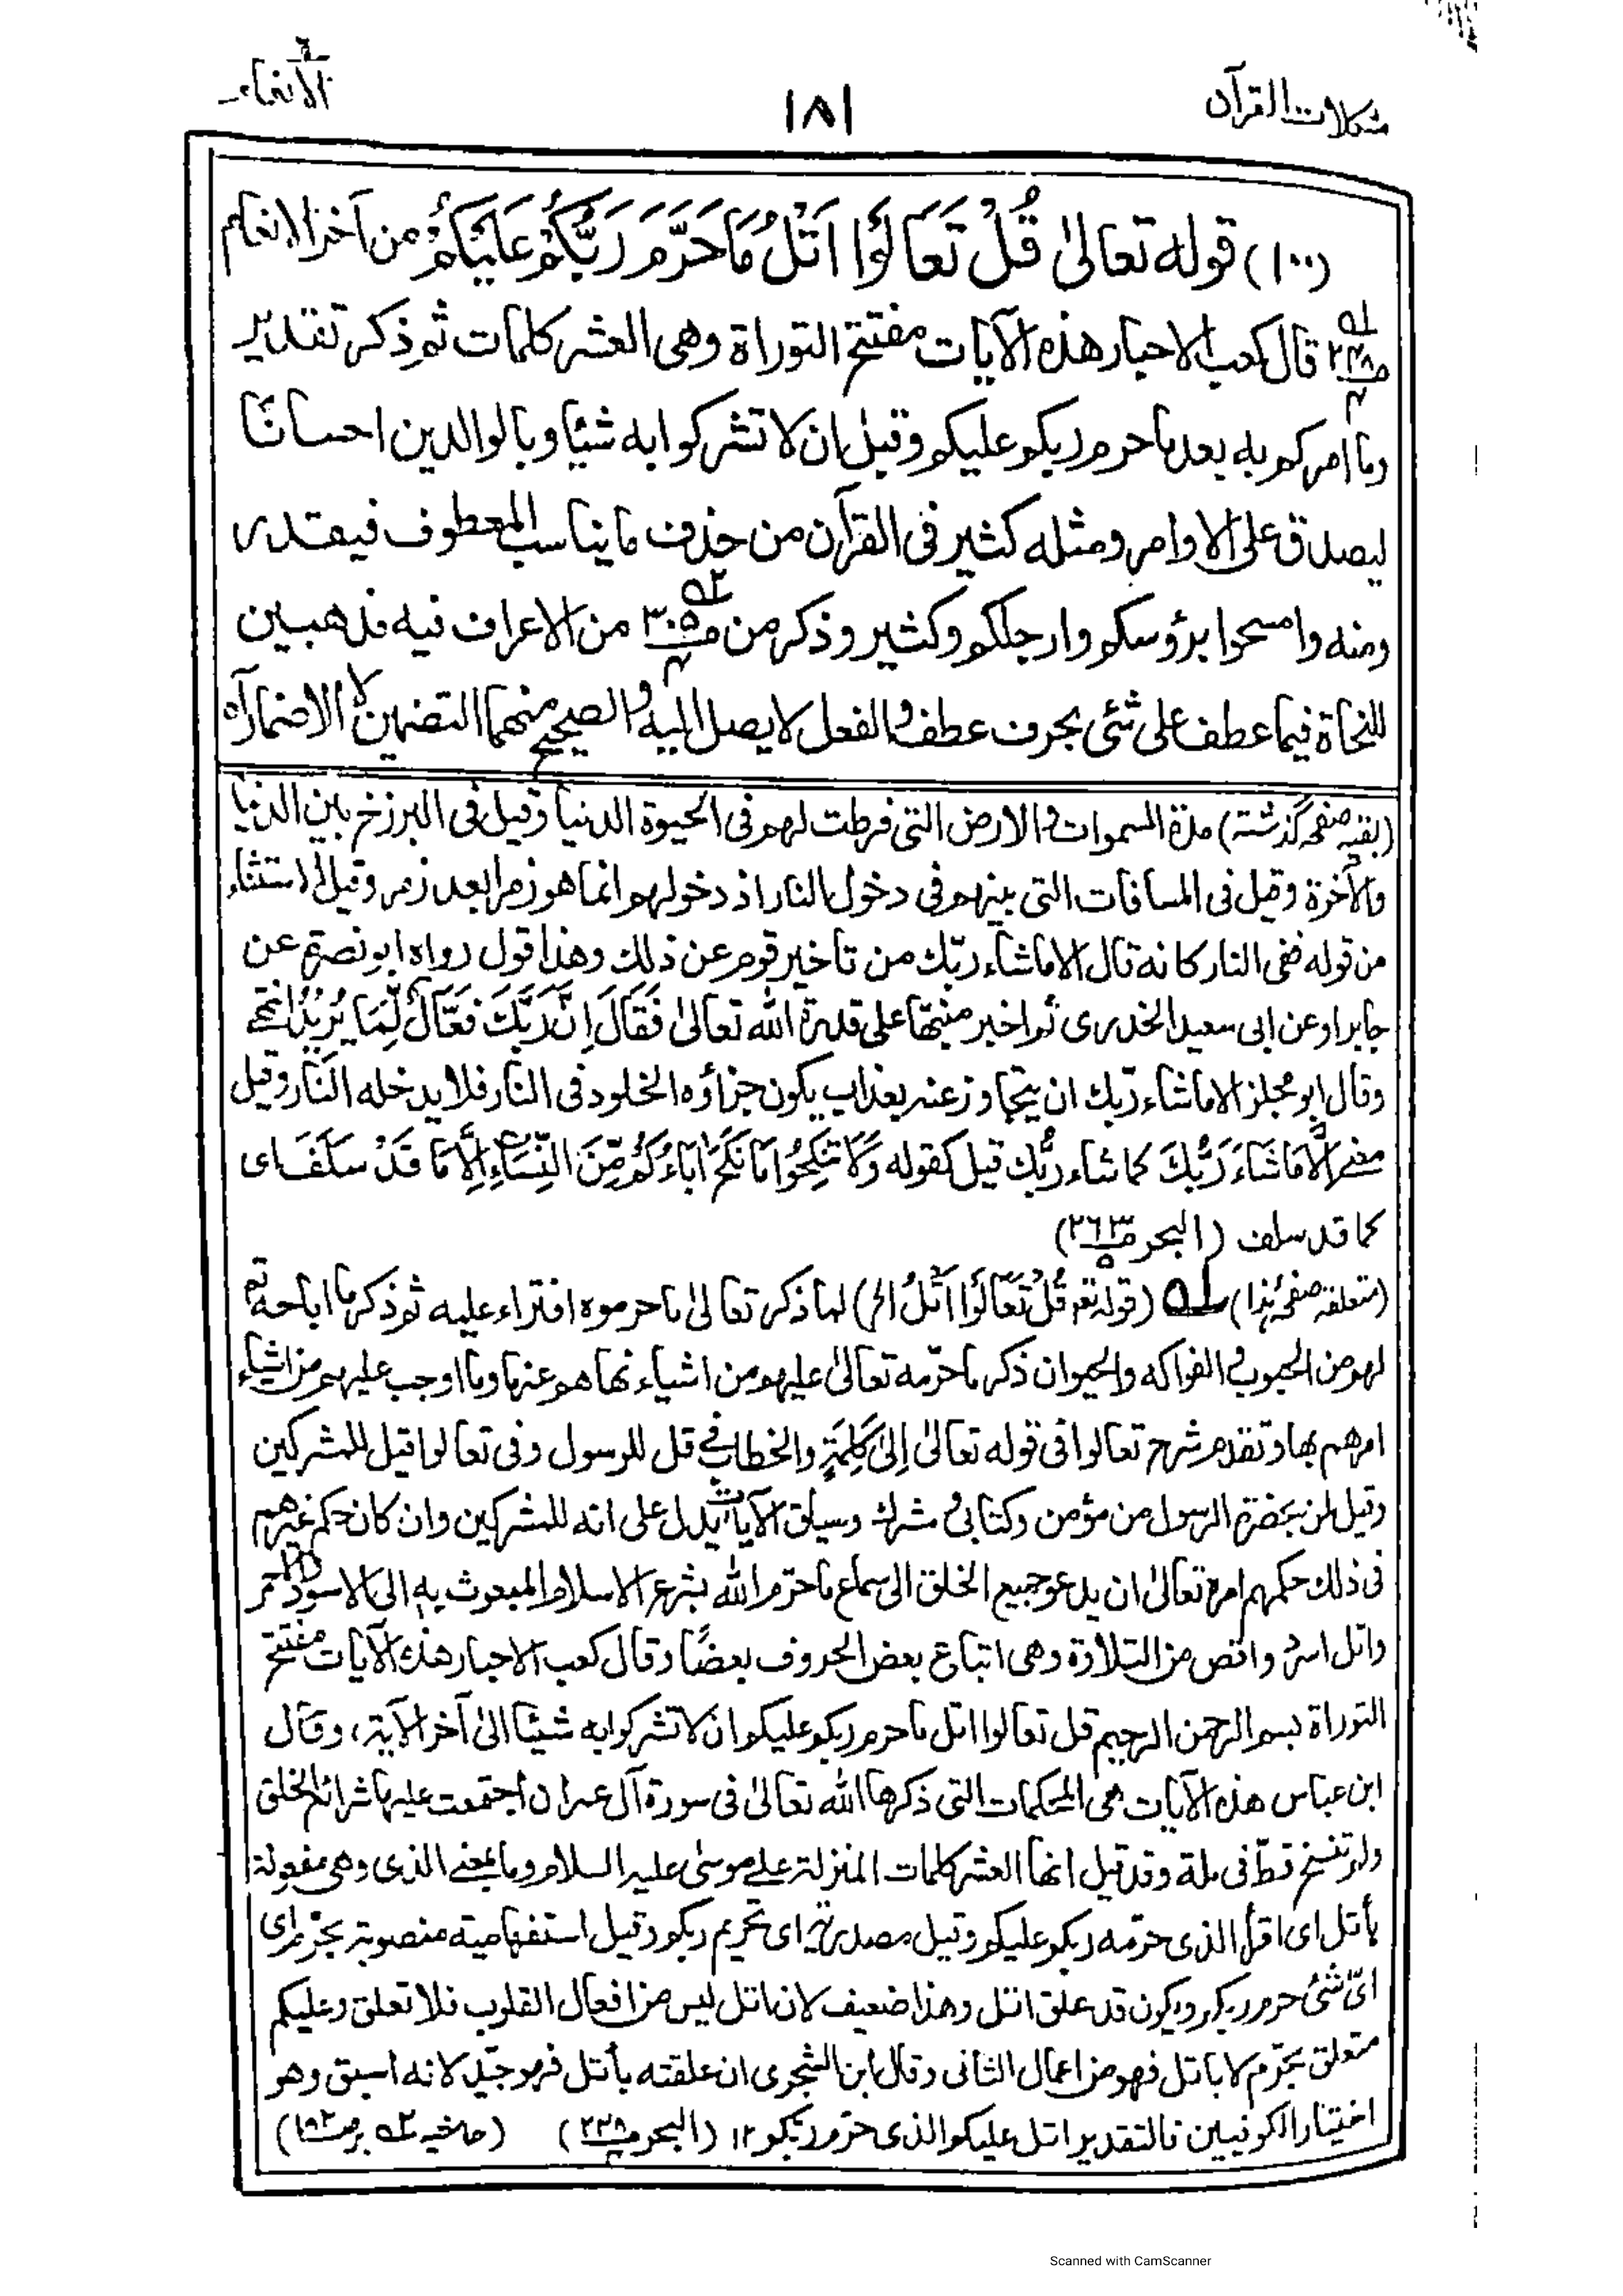 مشكلات القرآن
١٨١
الانعام ٦
(١٠٠) قوله تعالىٰ قُلْ تَعَالَوْا اَتْلُ مَا حَرَّمَ رَبُّكُمْ عَلَيْكُمْ من آخر الانعام
ص٢٤٨ قال كعب الاحبار هذه الآيات مفتتح التوراة وهى العشر كلمات ثم ذكر تقدير
وما امركم به بعد ما حرم ربكم عليكم وقبل ان لا تشركوا به شيئا وبالوالدين احسانًا
ليصدق على الاوامر ومثله كثير فى القرآن من حذف ما يناسب المعطوف فيقدر
ومنه وامسحوا برؤسكم وارجلكم وكثير وذكر من ص٣٠٥ من الاعراف فيه مذهبين
للنحاة فيما عطف على شئ بحرف عطف والفعل لا يصل اليه والصحيح منهما التضمين لا الاضمار اه
(بقيه صفحه گذشته) مدة السموات والارض التى فرطت لهم فى الحيوة الدنيا وقيل فى البرزخ بين الدنيا
والآخرة وقيل فى المسافات التى بينهم فى دخول النار اذ دخولهم انما هو زمرا بعد زمر وقيل الاستثناء
من قوله ففى النار كانه قال الا ما شاء ربّك من تاخير قوم عن ذلك وهذا قول رواه ابو نضرة عن
جابر او عن ابى سعيد الخدرى ثم اخبر منبها على قدرة الله تعالىٰ فَقَالَ اِنَّ رَبَّكَ فَعَّالٌ لِّمَا يُرِيْدُ انتهى
وقال ابو مجلز الا ما شاء ربّك ان يتجاوز عنه بعذاب يكون جزاؤه الخلود فى النار فلا يدخله النار وقيل
معنى اِلَّا مَا شَاءَ رَبُّكَ كما شاء ربُّك قيل كقوله وَلَا تَنْكِحُوْا مَا نَكَحَ اٰبَاءُكُمْ مِّنَ النِّسَاءِ اِلَّا مَا قَدْ سَلَفَ اى
كما قد سلف (البحر ص٢٦٣ ٥)
(متعلقہ صفحہ ہذا) ١ (قوله تعم قُلْ تَعَالَوْا اَتْلُ الخ) لما ذكر تعالىٰ ما حرموه افتراء عليه ثم ذكر ما اباحه تعم
لهم من الحبوب والفواكه والحيوان ذكر ما حرّمه تعالىٰ عليهم من اشياء نهاهم عنها وما اوجب عليهم من اشياء
امرهم بها وتقدم شرح تعالوا فى قوله تعالىٰ اِلىٰ كَلِمَةٍ والخطاب فى قل للرسول وفى تعالوا قيل للمشركين
وقيل لمن بحضرة الرسول من مؤمن وكتابى ومشرك وسياق الآيات يدل على انه للمشركين وان كان حكم غيرهم
فى ذلك حكمهم امره تعالىٰ ان يدعو جميع الخلق الى سماع ما حرّم الله بشرع الاسلام المبعوث به الى الاسود والاحمر
واتل اسرد واقص من التلاوة وهى اتباع بعض الحروف بعضًا وقال كعب الاحبار هذه الآيات مفتتح
التوراة بسم الله الرحمن الرحيم قل تعالوا اتل ما حرم ربكم عليكم ان لا تشركوا به شيئا الىٰ آخر الآية، وقال
ابن عباس هذه الآيات هى المحكمات التى ذكرها الله تعالىٰ فى سورة آل عمران اجتمعت عليها شرائع الخلق
ولم تنسخ قطّ فى ملة وقد قيل انها العشر كلمات المنزلة على موسىٰ عليه السلام وما بمعنى الذى وهى مفعولة
بأتل اى اقرأ الذى حرّمه ربكم عليكم وقيل مصدرية اى تحريم ربكم وقيل استفهامية منصوبة بحرّم اى
اىّ شئ حرم ربكم ويكون قد علق اتل وهذا ضعيف لان اتل ليس من افعال القلوب فلا تعلق وعليكم
متعلق بحرّم لا باتل فهو من اعمال الثانى وقال ابن الشجرى ان علقته بأتل فهو جيّد لانه اسبق وهو
اختيار الكوفيين فالتقدير اتل عليكم الذى حرّم ربكم ١٢ (البحر ص٢٤٩) (حاشيه ٢ بر ص١٩٢)
Scanned with CamScanner